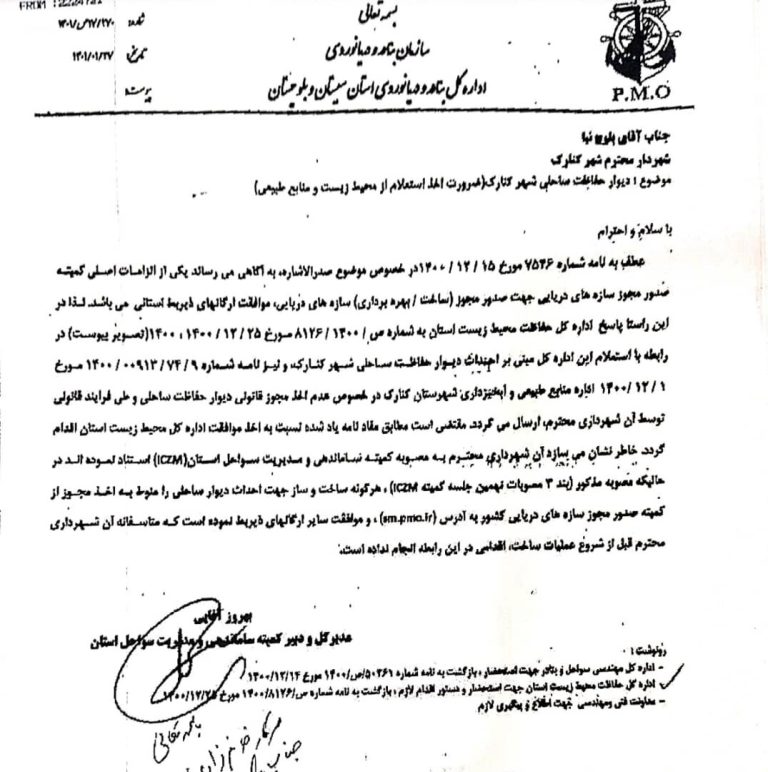 FROM :
بسمه تعالی
سازمان بنادر و دریانوردی
اداره کل بنادر و دریانوردی استان سیستان و بلوچستان
شماره:
تاریخ: ۱۴۰۱/۰۱/۲۷
پیوست:
P.M.O
جناب آقای بلوچ نیا
شهردار محترم شهر کنارک
موضوع : دیوار حفاظت ساحلی شهر کنارک(ضرورت اخذ استعلام از محیط زیست و منابع طبیعی)
با سلام و احترام
عطف به نامه شماره ۷۵۴۶ مورخ ۱۵ / ۱۲ / ۱۴۰۰در خصوص موضوع صدرالاشاره، به آگاهی می رساند یکی از الزامات اصلی کمیته
صدور مجوز سازه های دریایی جهت صدور مجوز (ساخت / بهره برداری) سازه های دریایی، موافقت ارگانهای ذیربط استانی می باشد. لذا در
این راستا پاسخ اداره کل حفاظت محیط زیست استان به شماره ص / ۱۴۰۰ / ۸۱۲۶ مورخ ۲۵ / ۱۲ / ۱۴۰۰ ، ۱۴۰۰(تصویر پیوست) در
رابطه با استعلام این اداره کل مبنی بر احداث دیوار حفاظت ساحلی شهر کنارک، و نیز نامه شماره ۹ / ۷۴ / ۰۰۹۱۳ / ۱۴۰۰ مورخ
۱ / ۱۲ / ۱۴۰۰ اداره منابع طبیعی و آبخیزداری شهرستان کنارک در خصوص عدم اخذ مجوز قانونی دیوار حفاظت ساحلی و طی فرایند قانونی
توسط آن شهرداری محترم، ارسال می گردد. مقتضی است مطابق مفاد نامه یاد شده نسبت به اخذ موافقت اداره کل محیط زیست استان اقدام
گردد. خاطر نشان می سازد آن شهرداری محترم به مصوبه کمیته ساماندهی و مدیریت سواحل استان(ICZM) استناد نموده اند در
حالیکه مصوبه مذکور (بند ۳ مصوبات نهمین جلسه کمیته ICZM) ، هرگونه ساخت و ساز جهت احداث دیوار ساحلی را منوط به اخذ مجوز از
کمیته صدور مجوز سازه های دریایی کشور به آدرس (sm.pmo.ir) ، و موافقت سایر ارگانهای ذیربط نموده است که متاسفانه آن شهرداری
محترم قبل از شروع عملیات ساخت، اقدامی در این رابطه انجام نداده است.
بهروز آقایی
مدیرکل و دبیر کمیته ساماندهی و مدیریت سواحل استان
رونوشت :
- اداره کل مهندسی سواحل و بنادر جهت استحضار ، بازگشت به نامه شماره ۵۰۲۶۱/ص/۱۴۰۰ مورخ ۱۴۰۰/۱۲/۱۴
- اداره کل حفاظت محیط زیست استان جهت استحضار و دستور اقدام لازم ، بازگشت به نامه شماره ص/۱۴۰۰/۸۱۲۶ مورخ ۱۴۰۰/۱۲/۲۵
- معاونت فنی ومهندسی جهت اطلاع و پیگیری لازم
باسمه تعالی